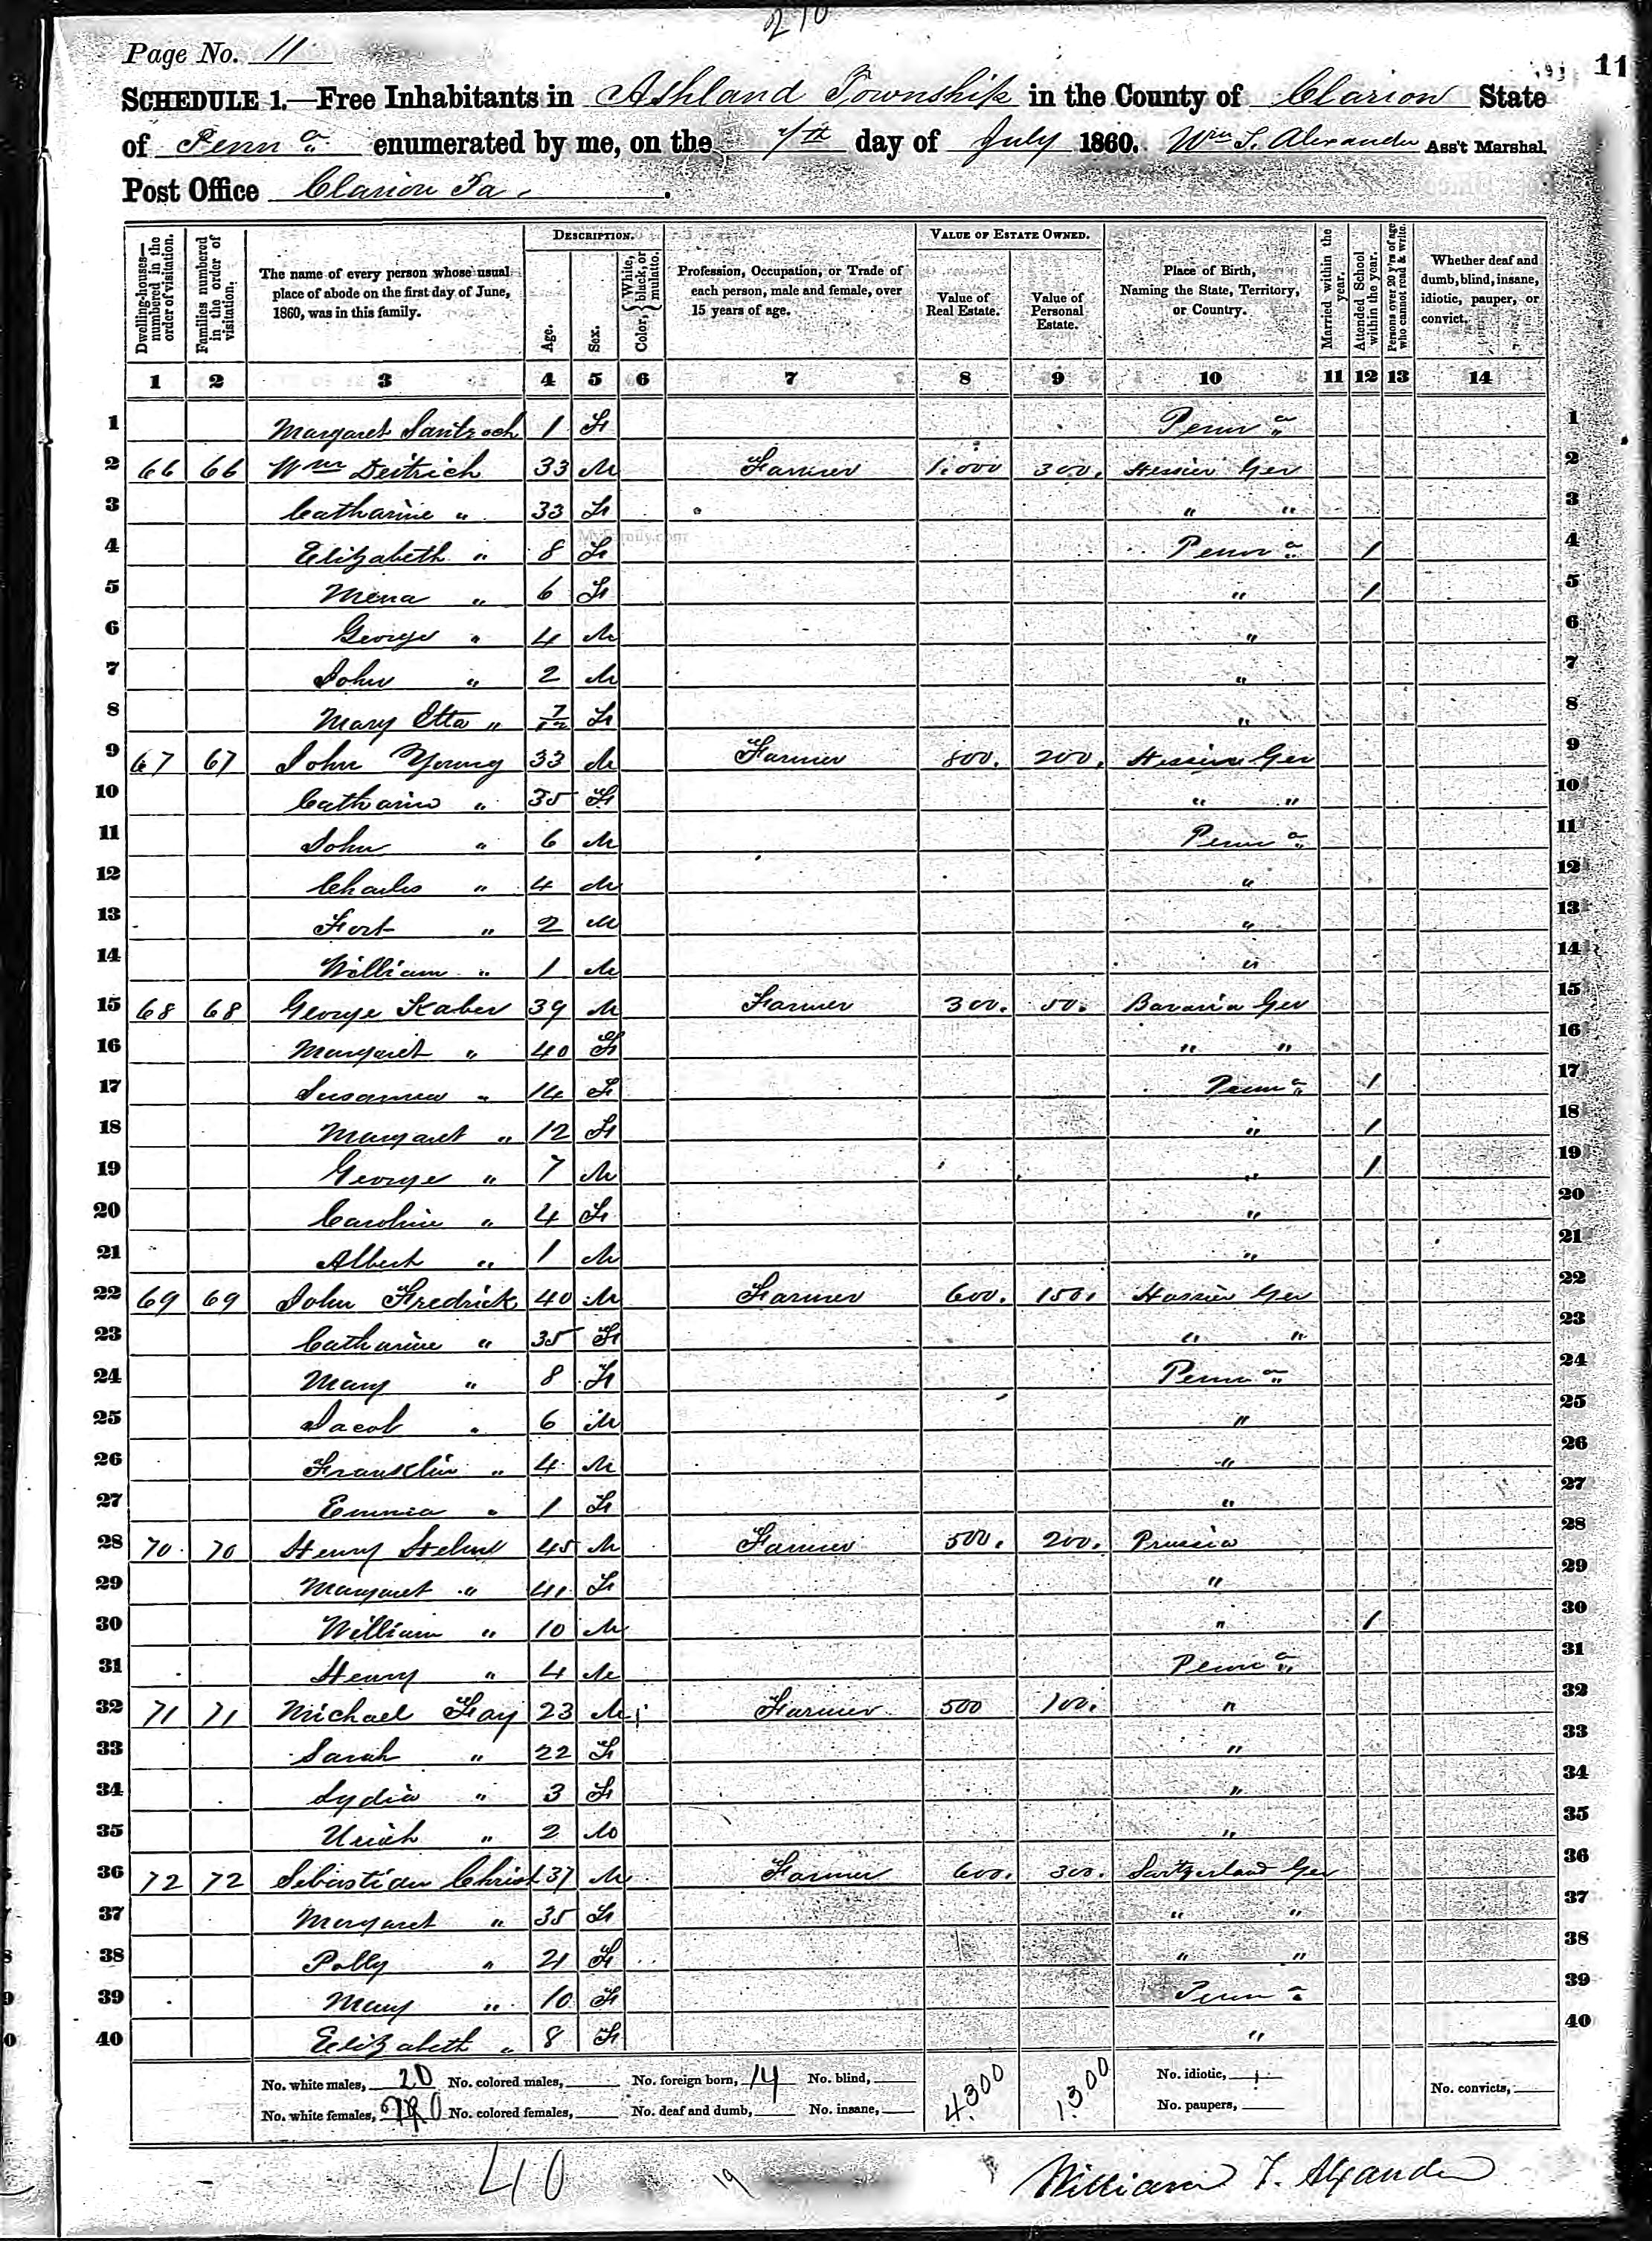 210
Page No. 11
11
SCHEDULE 1.—Free Inhabitants in Ashland Township in the County of Clarion State
of Penn a enumerated by me, on the 7th day of July 1860. Wm T. Alexander Ass't Marshal.
Post Office Clarion Pa.
Dwelling-houses—numbered in the order of visitation.
Families numbered in the order of visitation.
The name of every person whose usual place of abode on the first day of June, 1860, was in this family.
DESCRIPTION.
Age.
Sex.
Color, {White, black, or mulatto.
Profession, Occupation, or Trade of each person, male and female, over 15 years of age.
VALUE OF ESTATE OWNED.
Value of Real Estate.
Value of Personal Estate.
Place of Birth, Naming the State, Territory, or Country.
Married within the year.
Attended School within the year.
Persons over 20 y'rs of age who cannot read & write.
Whether deaf and dumb, blind, insane, idiotic, pauper, or convict.
1 2 3 4 5 6 7 8 9 10 11 12 13 14
1 Margaret 1 F Penn a 1
2 66 66 Wm Deitrich 33 M Farmer 1.000 300. Hessien Ger 2
3 Catharine " 33 F " " 3
4 Elizabeth " 8 F Penn a / 4
5 Mena " 6 F " / 5
6 George " 4 M " 6
7 John " 2 M " 7
8 Mary Etta " 7/12 F " 8
9 67 67 John Young 33 M Farmer 800. 200. Hessien Ger 9
10 Catharine " 35 F " " 10
11 John " 6 M Penn a 11
12 Charles " 4 M " 12
13 " 2 M " 13
14 William " 1 M " 14
15 68 68 George Kaber 39 M Farmer 300. 50. Bavaria Ger 15
16 Margaret " 40 F " " 16
17 Susannea " 14 F Penn a / 17
18 Margaret " 12 F " / 18
19 George " 7 M " / 19
20 Caroline " 4 F " 20
21 Albert " 1 M " 21
22 69 69 John Fredrick 40 M Farmer 600. 150. Hessien Ger 22
23 Catharine " 35 F " " 23
24 Mary " 8 F Penn a 24
25 Jacob " 6 M " 25
26 Franklin " 4 M " 26
27 Emma " 1 F " 27
28 70 70 Henry 45 M Farmer 500. 200. Prussia 28
29 Margaret " 41 F " 29
30 William " 10 M " / 30
31 Henry " 4 M Penn a 31
32 71 71 Michael Fay 23 M Farmer 500 100. " 32
33 Sarah " 22 F " 33
34 Lydia " 3 F " 34
35 Uriah " 2 M " 35
36 72 72 Sebastian Christ 37 M Farmer 600. 300. Switzerland Ger 36
37 Margaret " 35 F " " 37
38 Polly " 21 F " " 38
39 Mary " 10 F Penn a 39
40 Elizabeth " 8 F " 40
No. white males, 20 No. colored males, No. foreign born, 14 No. blind, 4300 1300 No. idiotic,
No. white females, 20 No. colored females, No. deaf and dumb, No. insane, No. paupers, No. convicts,
40
19
William T. Alexander